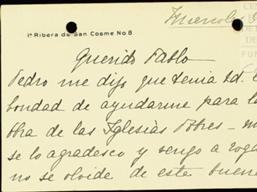 1ª Ribera de San Cosme No. 8
Querido Pablo
Pedro me dijo que tenia Ud. l
bondad de ayudarme para l
obra de las Iglesias Pobres - m
se lo agradesco y vengo a roga
no se olvide de este buen